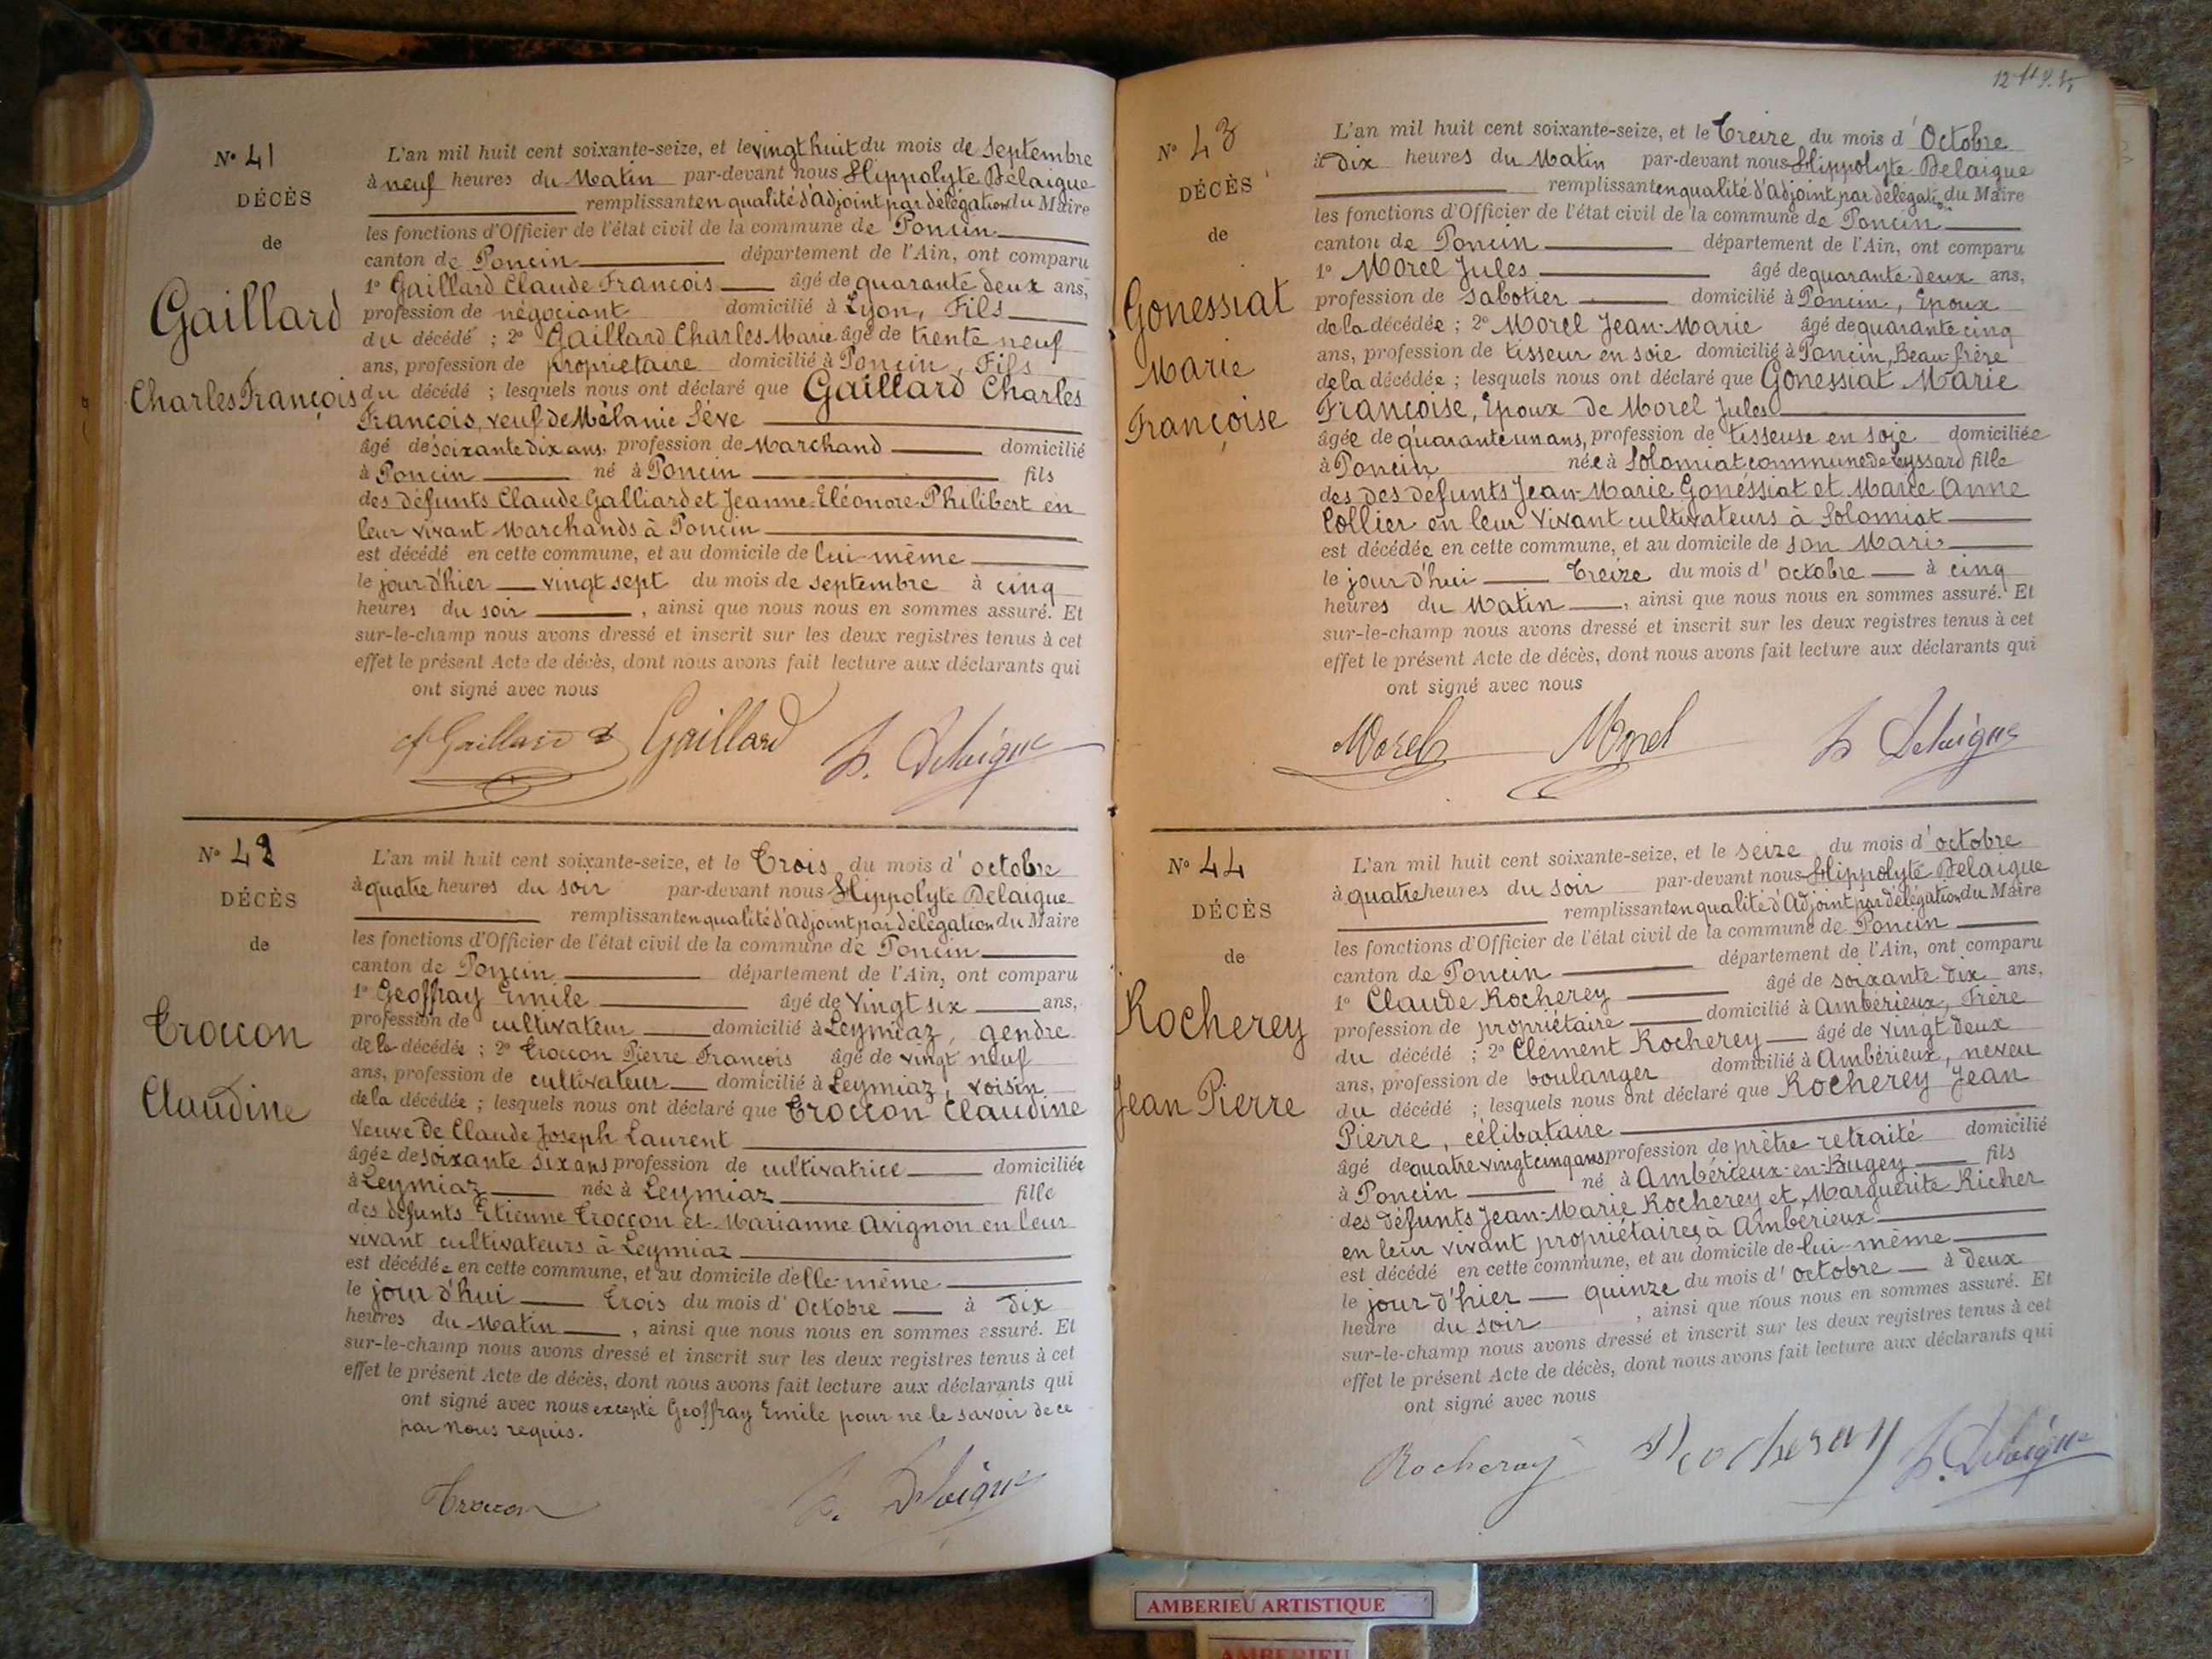 N° 41
DÉCÈS
de
Gaillard
Charles François
L'an mil huit cent soixante-seize, et le vingt huit du mois de Septembre
à neuf heures du Matin par-devant nous Hippolyte Délaigue
remplissant en qualité d'Adjoint par délégation du Maire
les fonctions d'Officier de l'état civil de la commune de Poncin
canton de Poncin département de l'Ain, ont comparu
1° Gaillard Claude François âgé de quarante deux ans,
profession de négociant domicilié à Lyon, Fils
du décédé ; 2° Gaillard Charles Marie âgé de trente neuf
ans, profession de propriétaire domicilié à Poncin, Fils
du décédé ; lesquels nous ont déclaré que Gaillard Charles
François, veuf de Mélanie Sève
âgé de soixante dix ans, profession de Marchand domicilié
à Poncin né à Poncin fils
des défunts Claude Galliard et Jeanne-Eléonore-Philibert en
leur vivant Marchands à Poncin
est décédé en cette commune, et au domicile de lui-même
le jour d'hier vingt sept du mois de septembre à cinq
heures du soir , ainsi que nous nous en sommes assuré. Et
sur-le-champ nous avons dressé et inscrit sur les deux registres tenus à cet
effet le présent Acte de décès, dont nous avons fait lecture aux déclarants qui
ont signé avec nous
Gaillard Gaillard h. Delaigue
N° 42
DÉCÈS
de
Troccon
Claudine
L'an mil huit cent soixante-seize, et le Trois du mois d' octobre
à quatre heures du soir par-devant nous Hippolyte Delaigue
remplissant en qualité d'Adjoint par délégation du Maire
les fonctions d'Officier de l'état civil de la commune de Poncin
canton de Poncin département de l'Ain, ont comparu
1° Geoffray Emile âgé de vingt six ans,
profession de cultivateur domicilié à Leymiaz, gendre
de la décédée ; 2° Troccon Pierre François âgé de vingt neuf
ans, profession de cultivateur domicilié à Leymiaz, voisin
de la décédée ; lesquels nous ont déclaré que Troccon Claudine
Veuve de Claude Joseph Laurent
âgée de soixante six ans profession de cultivatrice domiciliée
à Leymiaz née à Leymiaz fille
des défunts Etienne Troccon et Marianne Avignon en leur
vivant cultivateurs à Leymiaz
est décédée en cette commune, et au domicile d'elle-même
le jour d'hui Trois du mois d' Octobre à dix
heures du Matin , ainsi que nous nous en sommes assuré. Et
sur-le-champ nous avons dressé et inscrit sur les deux registres tenus à cet
effet le présent Acte de décès, dont nous avons fait lecture aux déclarants qui
ont signé avec nous excepté Geoffray Emile pour ne le savoir de ce
par nous requis.
Troccon h. Delaigue
N° 43
DÉCÈS
de
Gonessiat
Marie
Françoise
L'an mil huit cent soixante-seize, et le Treize du mois d' Octobre
à dix heures du Matin par-devant nous Hippolyte Delaigue
remplissant en qualité d'Adjoint par délégati. du Maire
les fonctions d'Officier de l'état civil de la commune de Poncin
canton de Poncin département de l'Ain, ont comparu
1° Morel Jules âgé de quarante-deux ans,
profession de sabotier domicilié à Poncin, Epoux
de la décédée ; 2° Morel Jean-Marie âgé de quarante cinq
ans, profession de tisseur en soie domicilié à Poncin, Beau-frère
de la décédée ; lesquels nous ont déclaré que Gonessiat Marie
Françoise, Epoux de Morel Jules
âgée de quarante un ans, profession de tisseuse en soie domiciliée
à Poncin née à Solomiat commune de Leyssard fille
des des défunts Jean-Marie Gonessiat et Marie Anne
Collier en leur Vivant cultivateurs à Solomiat
est décédée en cette commune, et au domicile de son Mari
le jour d'hui Treize du mois d' octobre à cinq
heures du Matin , ainsi que nous nous en sommes assuré. Et
sur-le-champ nous avons dressé et inscrit sur les deux registres tenus à cet
effet le présent Acte de décès, dont nous avons fait lecture aux déclarants qui
ont signé avec nous
Morel Morel h Delaigue
N° 44
DÉCÈS
de
Rocherey
Jean Pierre
L'an mil huit cent soixante-seize, et le seize du mois d' octobre
à quatre heures du soir par-devant nous Hippolyte Delaigue
remplissant en qualité d'Adjoint par délégation du Maire
les fonctions d'Officier de l'état civil de la commune de Poncin
canton de Poncin département de l'Ain, ont comparu
1° Claude Rocherey âgé de soixante dix ans,
profession de propriétaire domicilié à Ambérieux, Frère
du décédé ; 2° Clément Rocherey âgé de vingt deux
ans, profession de boulanger domicilié à Ambérieux, neveu
du décédé ; lesquels nous ont déclaré que Rocherey Jean
Pierre, célibataire
âgé de quatre vingt cinq ans profession de prêtre retraité domicilié
à Poncin né à Ambérieux-en-Bugey fils
des défunts Jean-Marie Rocherey et Marguerite Richer
en leur vivant propriétaires à Ambérieux
est décédé en cette commune, et au domicile de lui-même
le jour d'hier quinze du mois d' octobre à deux
heure du soir , ainsi que nous nous en sommes assuré. Et
sur-le-champ nous avons dressé et inscrit sur les deux registres tenus à cet
effet le présent Acte de décès, dont nous avons fait lecture aux déclarants qui
ont signé avec nous
Rocheray Rocheray h. Delaigue
AMBERIEU ARTISTIQUE
AMBERIEU